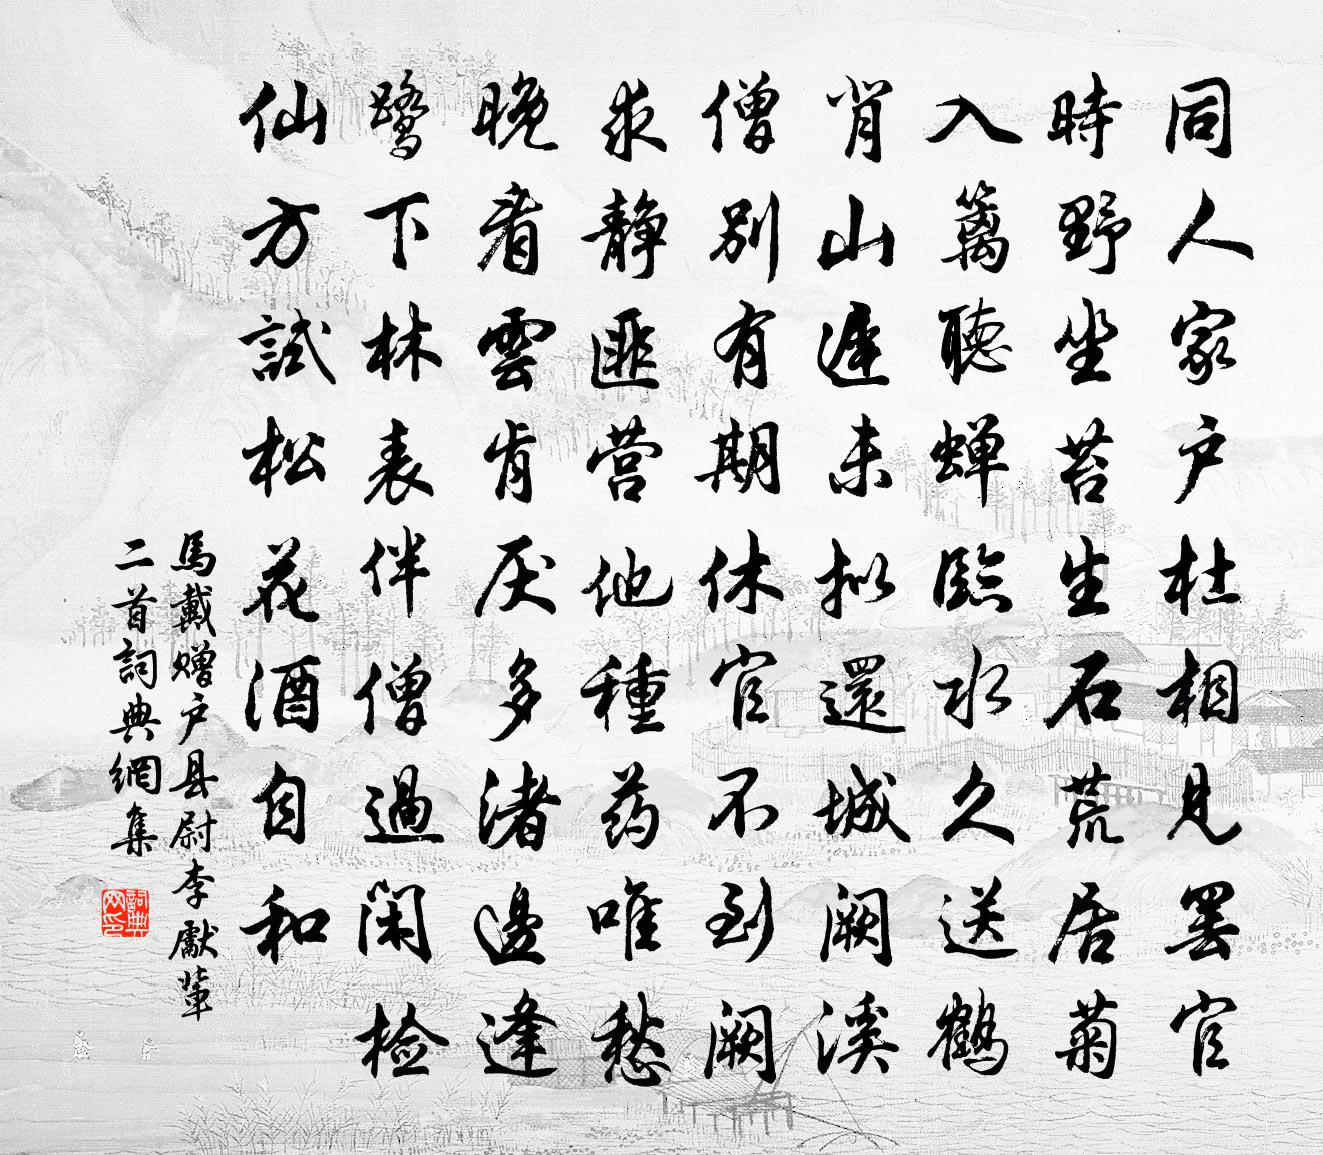 同人家户杜相見罢官
時野坐苔生石荒居菊
入篱聽蝉臨水久送鶴
背山遲未拟還城阙溪
僧別有期休官不到阙
求静匪营他種药唯愁
晚看雲肯厌多渚邊逢
鹭下林表伴僧過闲检
仙方試松花酒自和
馬戴赠户县尉李獻輩
二首詞典網集
詞典网印